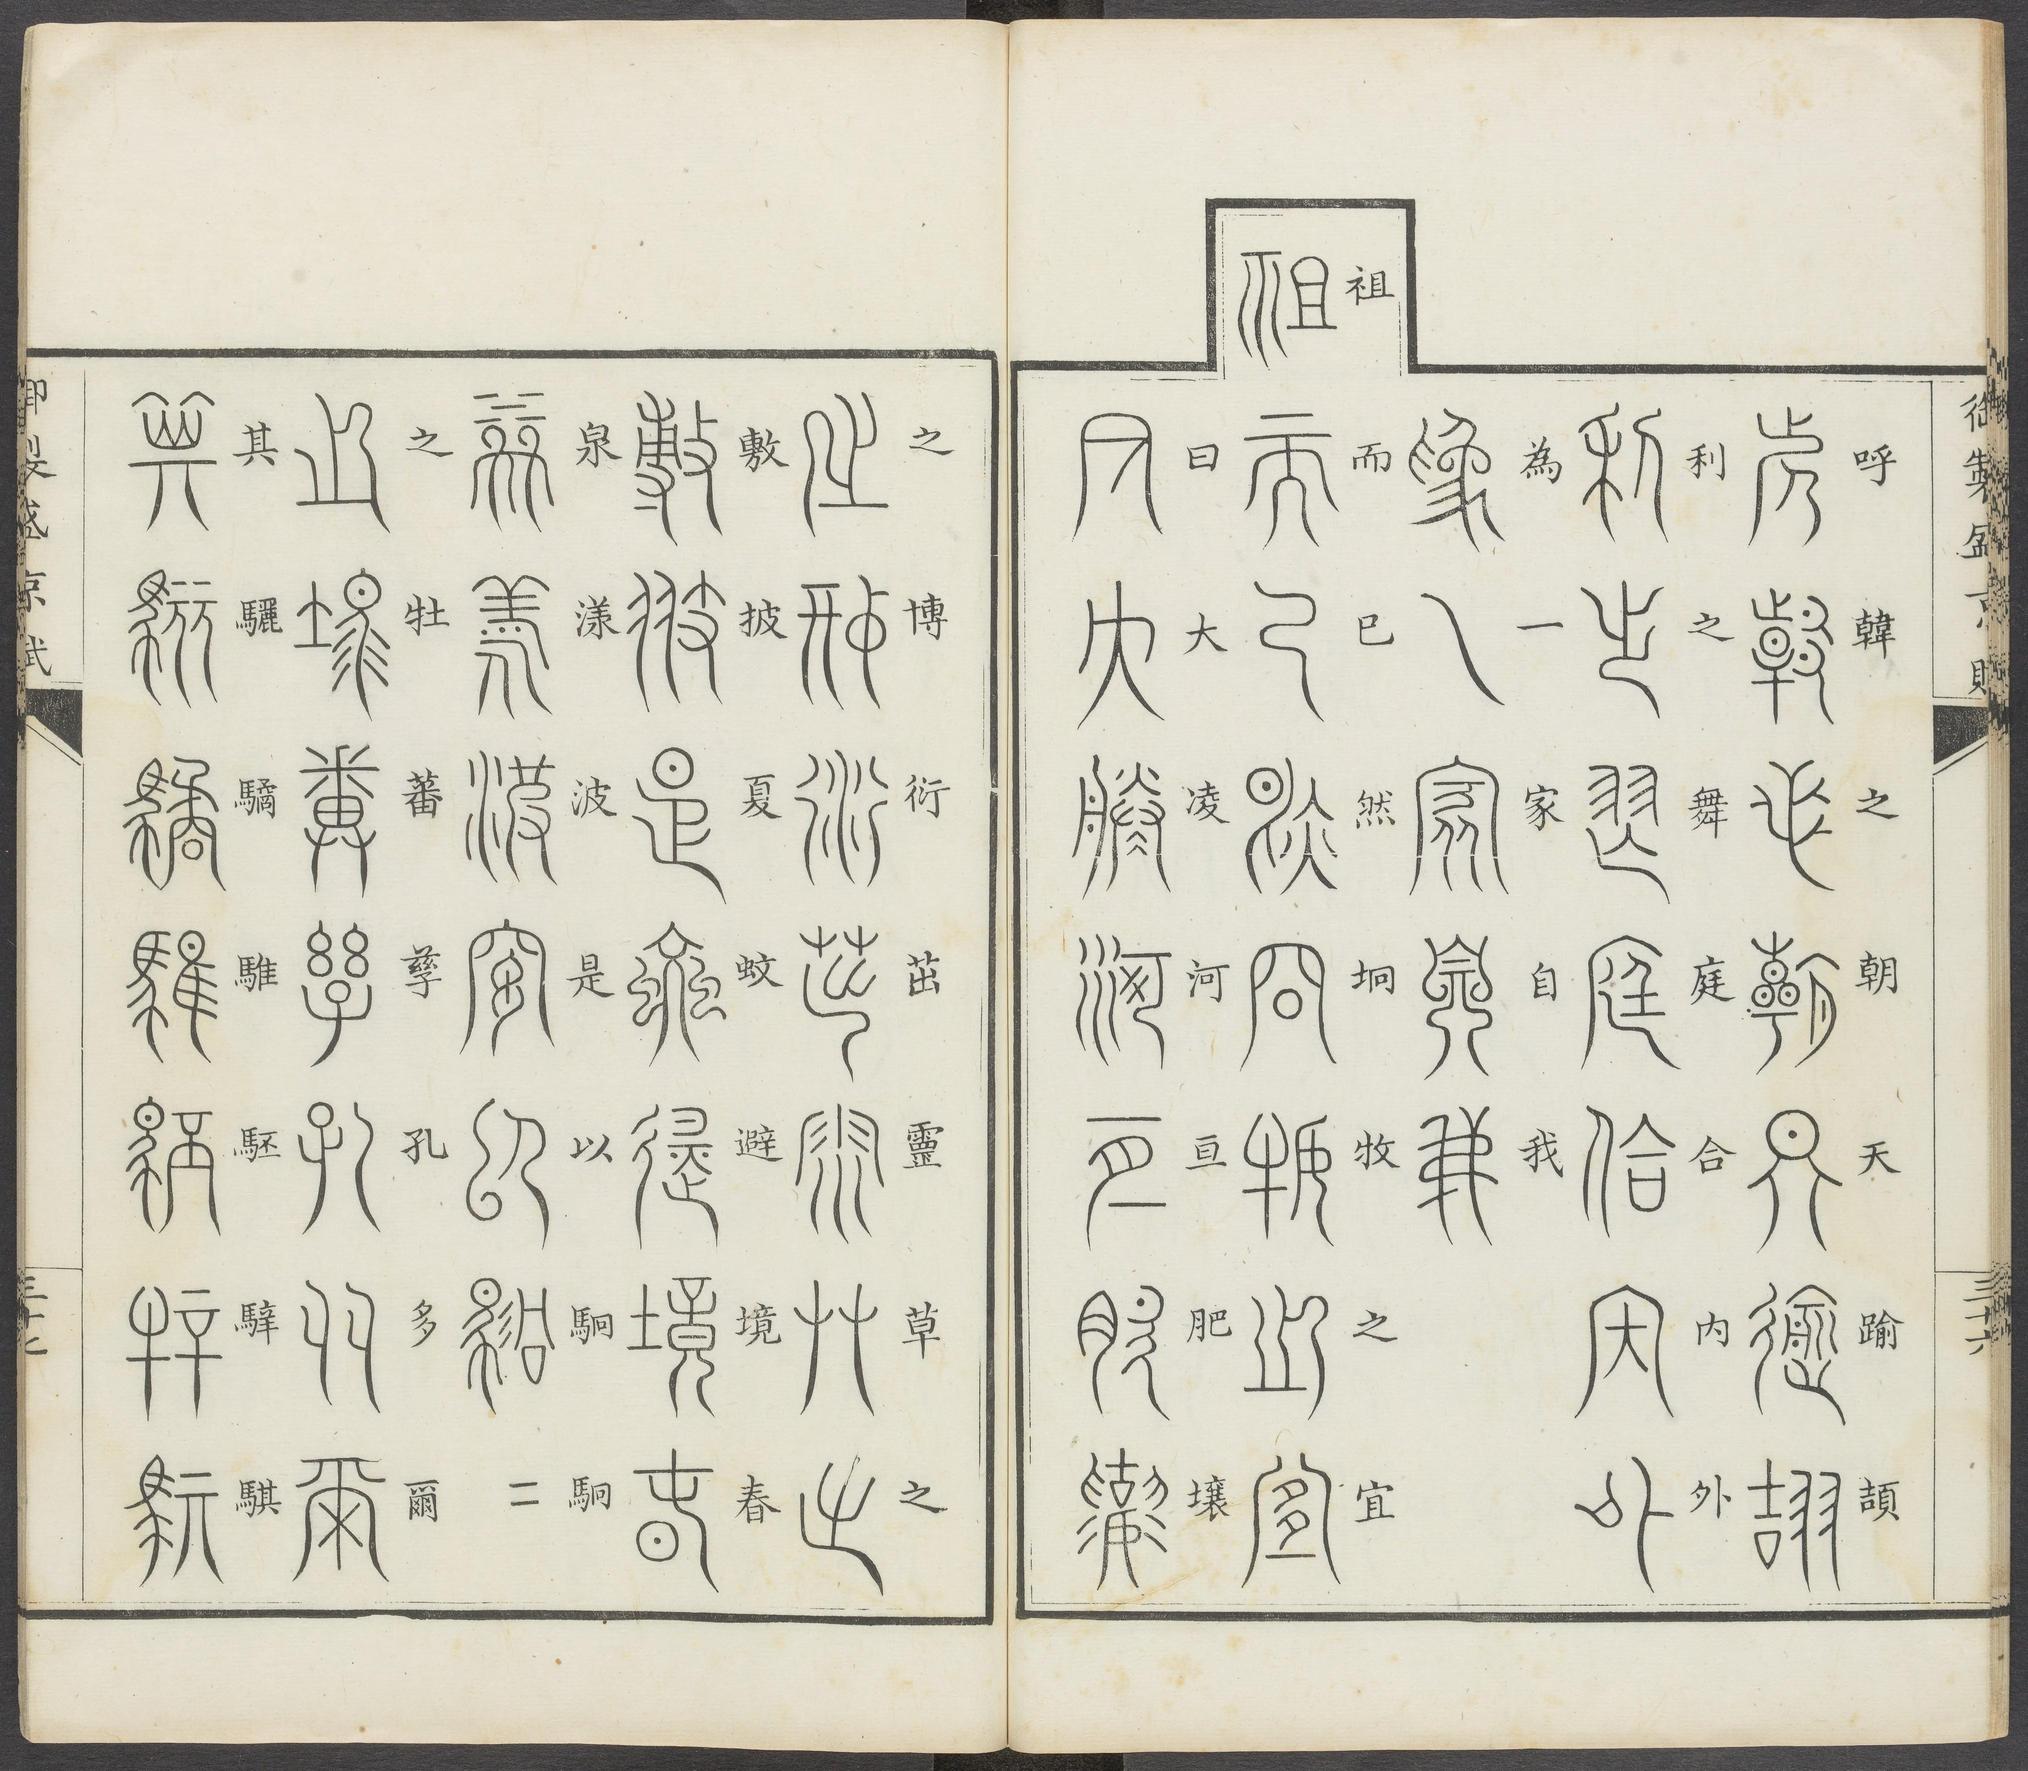 御製盛京賦
三十六
呼韓之朝天踰頡
利之舞庭合內外
為一家自我
祖而已然坰牧之宜
曰大凌河亘肥壤
之博衍茁靈草之
敷披夏蚊避境春
泉漾波是以駉駉二
之牡蕃孳孔多爾
其驪驈騅駓騂騏
御製盛京賦
三十七